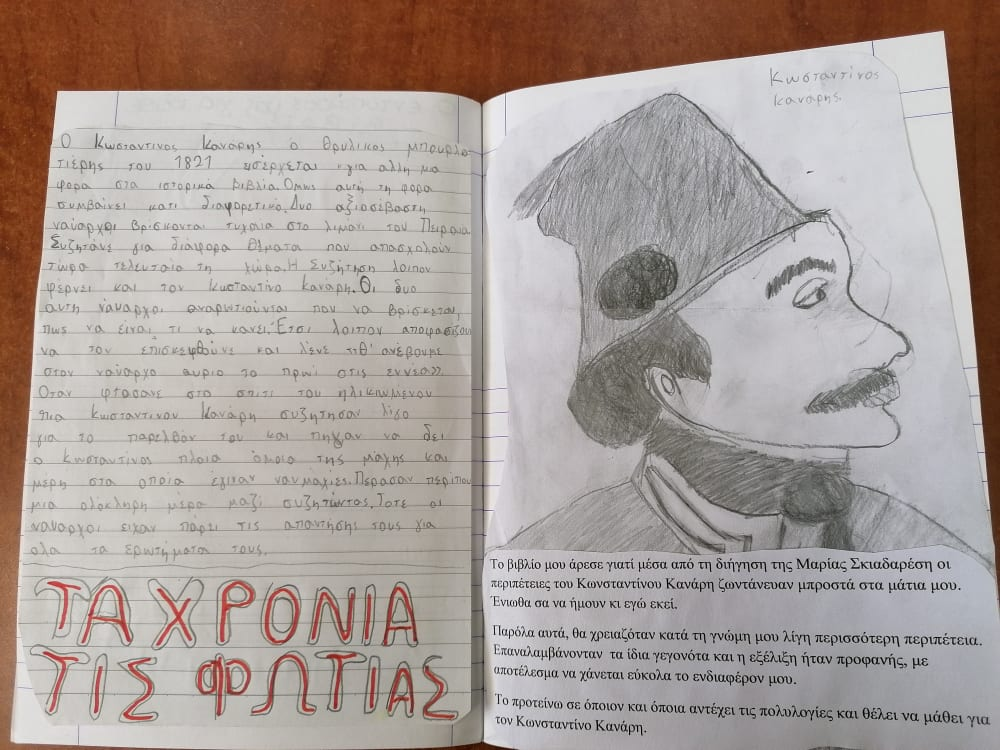 Ο Κωσταντινος Καναρης ο θρυλικος μπουρλο
τιέρης του 1821 εισέρχεται για αλλη μια
φορα στα ιστορικα βιβλια. Ομως αυτή τη φορα
συμβαίνει κατι διαφορετικό. Δυο αξιοσέβαστη
ναύαρχοι βρισκονται τυχαια στο λιμανι του Πειραια.
Συζητάνε για διάφορα θέματα που απασχολούν
τώρα τελευταία τη χώρα. Η Συζήτηση λοιπον
φέρνει και τον Κωσταντίνο Καναρη. Οι δυο
αυτη νάυαρχοι αναρωτιούνται που να βρίσκεται,
πως να είναι, τι να κανει. Έτσι λοιπον αποφασιζου
να τον επισκεφθούνε και λένε <<Θ' ανέβουμε
στον ναύαρχο αυριο το πρωί στις εννέα>>.
Οταν φτασανε στο σπιτι του ηλικιωμενου
πια Κωσταντινου Κανάρη συζητησαν λίγο
για το παρελθόν του και πηγαν να δει
ο Κωσταντίνος πλοια όμοια της μάχης και
μέρη στα οποια έγιναν ναυμαχιες. Περασαν περίπου
μια ολόκληρη μέρα μαζί συζητώντας. Τοτε οι
νάυαρχοι ειχαν πάρει τις απαντήσης τους για
ολα τα ερωτήματα τους.
ΤΑ ΧΡΟΝΙΑ
ΤΙΣ ΦΩΤΙΑΣ
Κωσταντίνος
Κανάρης.
Το βιβλίο μου άρεσε γιατί μέσα από τη διήγηση της Μαρίας Σκιαδαρέση οι
περιπέτειες του Κωνσταντίνου Κανάρη ζωντάνευαν μπροστά στα μάτια μου.
Ένιωθα σα να ήμουν κι εγώ εκεί.
Παρόλα αυτά, θα χρειαζόταν κατά τη γνώμη μου λίγη περισσότερη περιπέτεια.
Επαναλαμβάνονταν τα ίδια γεγονότα και η εξέλιξη ήταν προφανής, με
αποτέλεσμα να χάνεται εύκολα το ενδιαφέρον μου.
Το προτείνω σε όποιον και όποια αντέχει τις πολυλογίες και θέλει να μάθει για
τον Κωνσταντίνο Κανάρη.